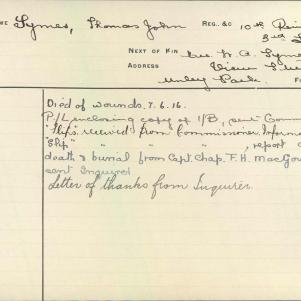 ME Symes, Thomas John REG. &C 10th Rein
3rd
NEXT OF KIN
ADDRESS
Unley Park.
Died of wounds. 7.6.16.
P/L enclosing copy of 1/B, sent Comm
"Slip" received from Commissioner. Inform
Slip" " " " , report
death & burial from Capt. Chap. F.H. MacGow
sent Inquirer
Letter of thanks from Inquirer.